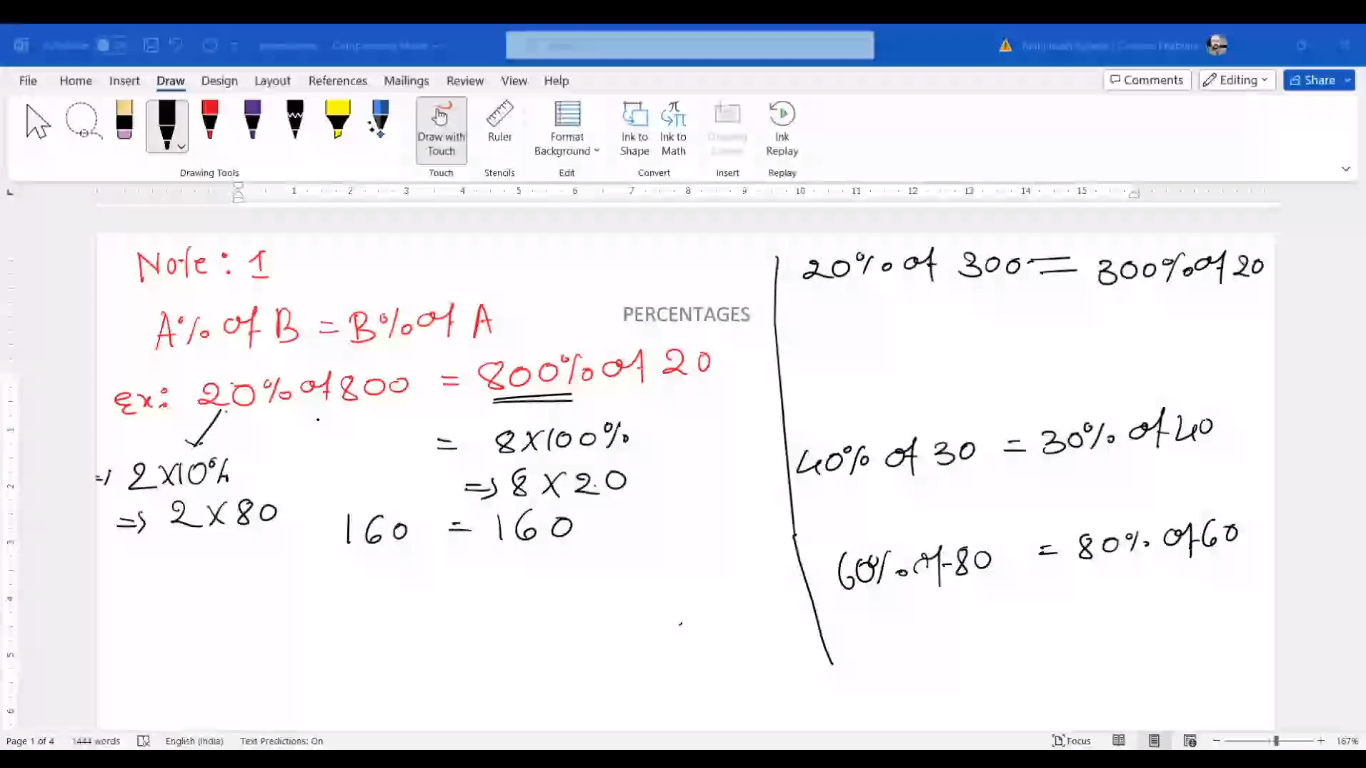 File Home Insert Draw Design Layout References Mailings Review View Help Comments Editing Share
Draw with Touch Ruler Format Background Ink to Shape Ink to Math Ink Replay
Drawing Tools Touch Stencils Edit Convert Insert Replay
1 2 3 4 5 6 7 8 9 10 11 12 13 14 15
Note: 1
A% of B = B% of A
PERCENTAGES
Ex: 20% of 800 = 800% of 20
= 8 X 100%
⇒ 2 X 10%
⇒ 8 X 20
⇒ 2 X 80
160 = 160
20% of 300 = 300% of 20
40% of 30 = 30% of 40
60% of 80 = 80% of 60
Page 1 of 4 1444 words English (India) Text Predictions: On Focus 167%